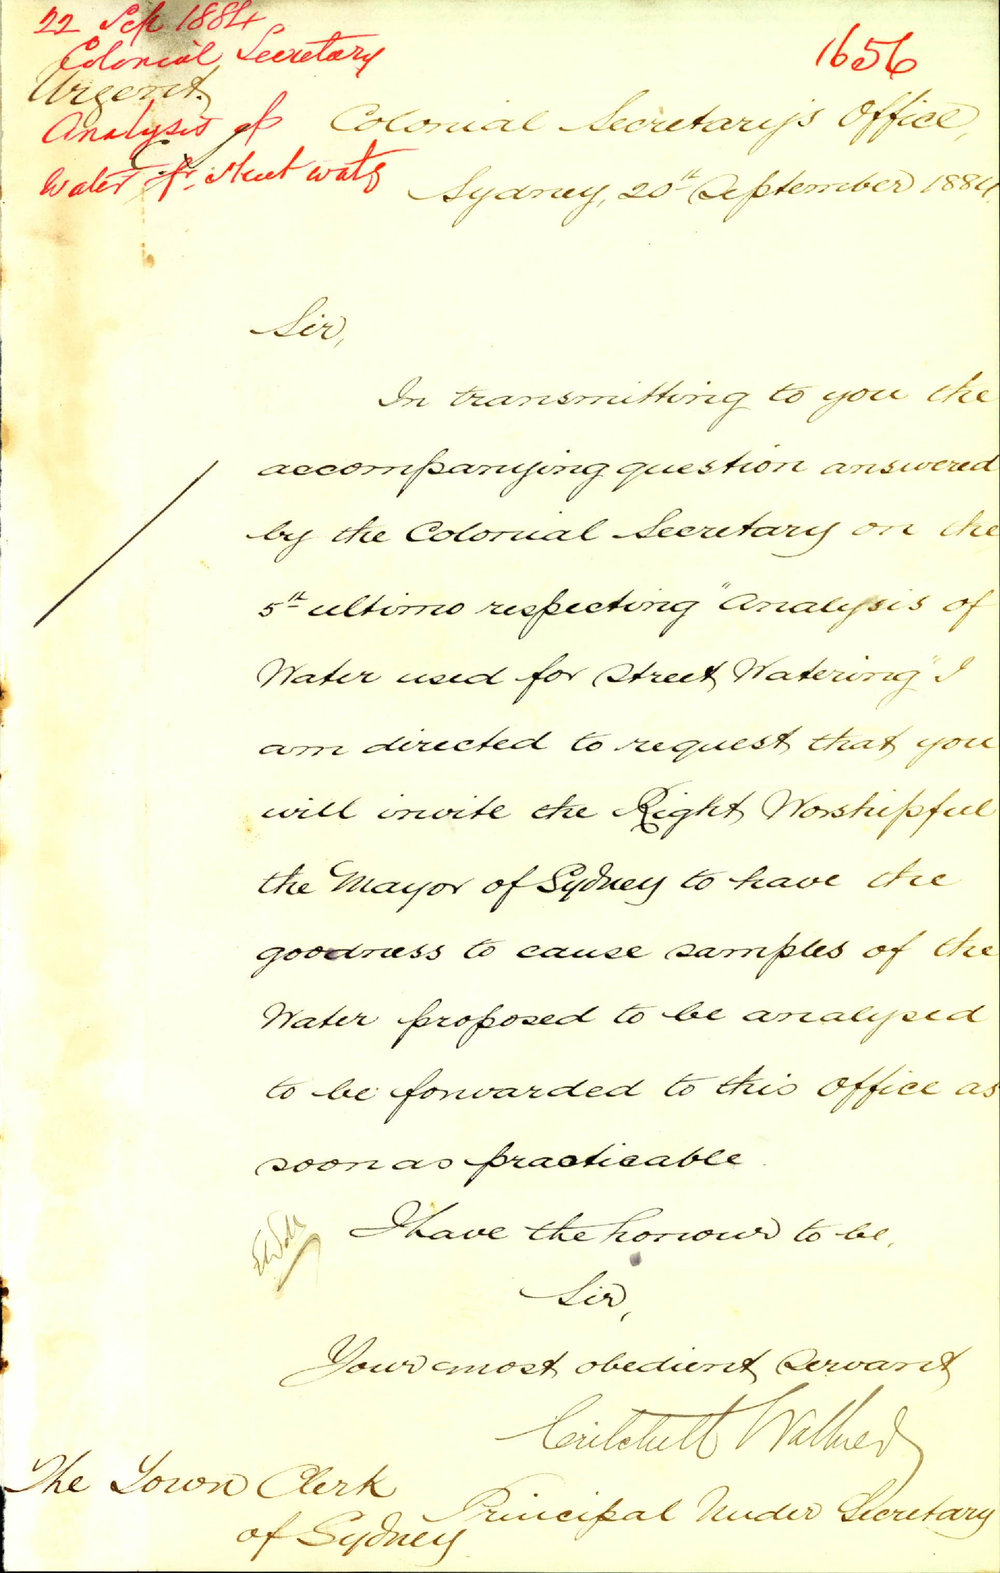 22 Sep 1884
Colonial Secretary
Urgent.
Analysis of
Water fr. Street watg
1656
Colonial Secretary's Office,
Sydney, 20th September 1884.
Sir,
In transmitting to you the
accompanying question answered
by the Colonial Secretary on the
5th ultimo respecting "Analysis of
Water used for Street Watering" I
am directed to request that you
will invite the Right Worshipful
the Mayor of Sydney to have the
goodness to cause samples of the
Water proposed to be analysed
to be forwarded to this Office as
soon as practicable.
I have the honour to be,
Sir,
Your most obedient Servant
Critchett Walker
Principal Under Secretary
The Town Clerk
of Sydney